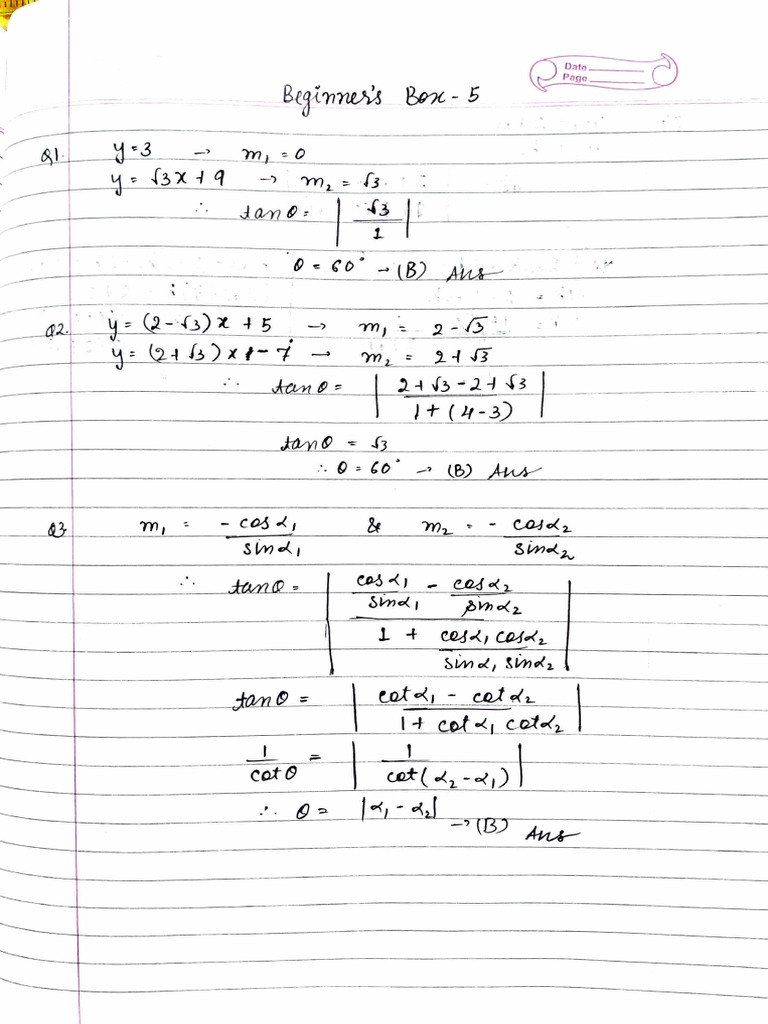 Date
Page
Beginner's Box - 5
Q1. y = 3 → m₁ = 0
y = √3x + 9 → m₂ = √3
∴ tanθ = | √3 / 1 |
θ = 60° → (B) Ans
Q2. y = (2-√3)x + 5 → m₁ = 2-√3
y = (2+√3)x - 7 → m₂ = 2+√3
∴ tanθ = | (2+√3-2+√3) / (1+(4-3)) |
tanθ = √3
∴ θ = 60° → (B) Ans
Q3 m₁ = -cosα₁ / sinα₁ & m₂ = -cosα₂ / sinα₂
∴ tanθ = | (cosα₁/sinα₁ - cosα₂/sinα₂) / (1 + cosα₁cosα₂/sinα₁sinα₂) |
tanθ = | (cotα₁ - cotα₂) / (1 + cotα₁ cotα₂) |
1/cotθ = | 1 / cot(α₂-α₁) |
∴ θ = |α₁-α₂| → (B) Ans